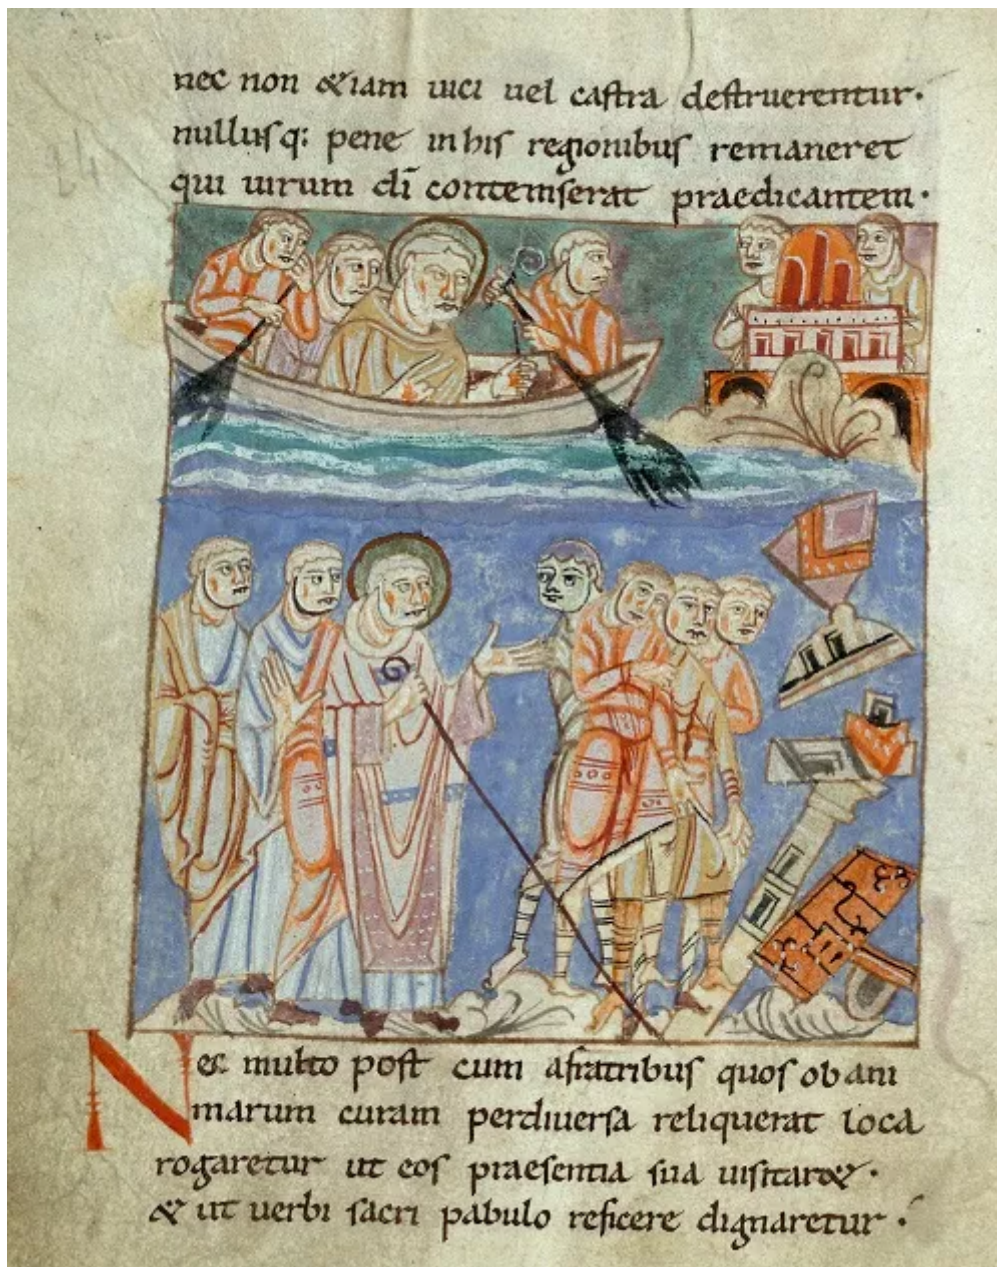 nec non &iam uici uel castra destruerentur·
nullusq: pene in his regionibus remaneret
qui uirum dī contemserat praedicantem·
Nec multo post cum a fratribus quos ob ani
marum curam per diuersa reliquerat loca
rogaretur ut eos praesentia sua uisitar&·
& ut uerbi sacri pabulo reficere dignaretur·